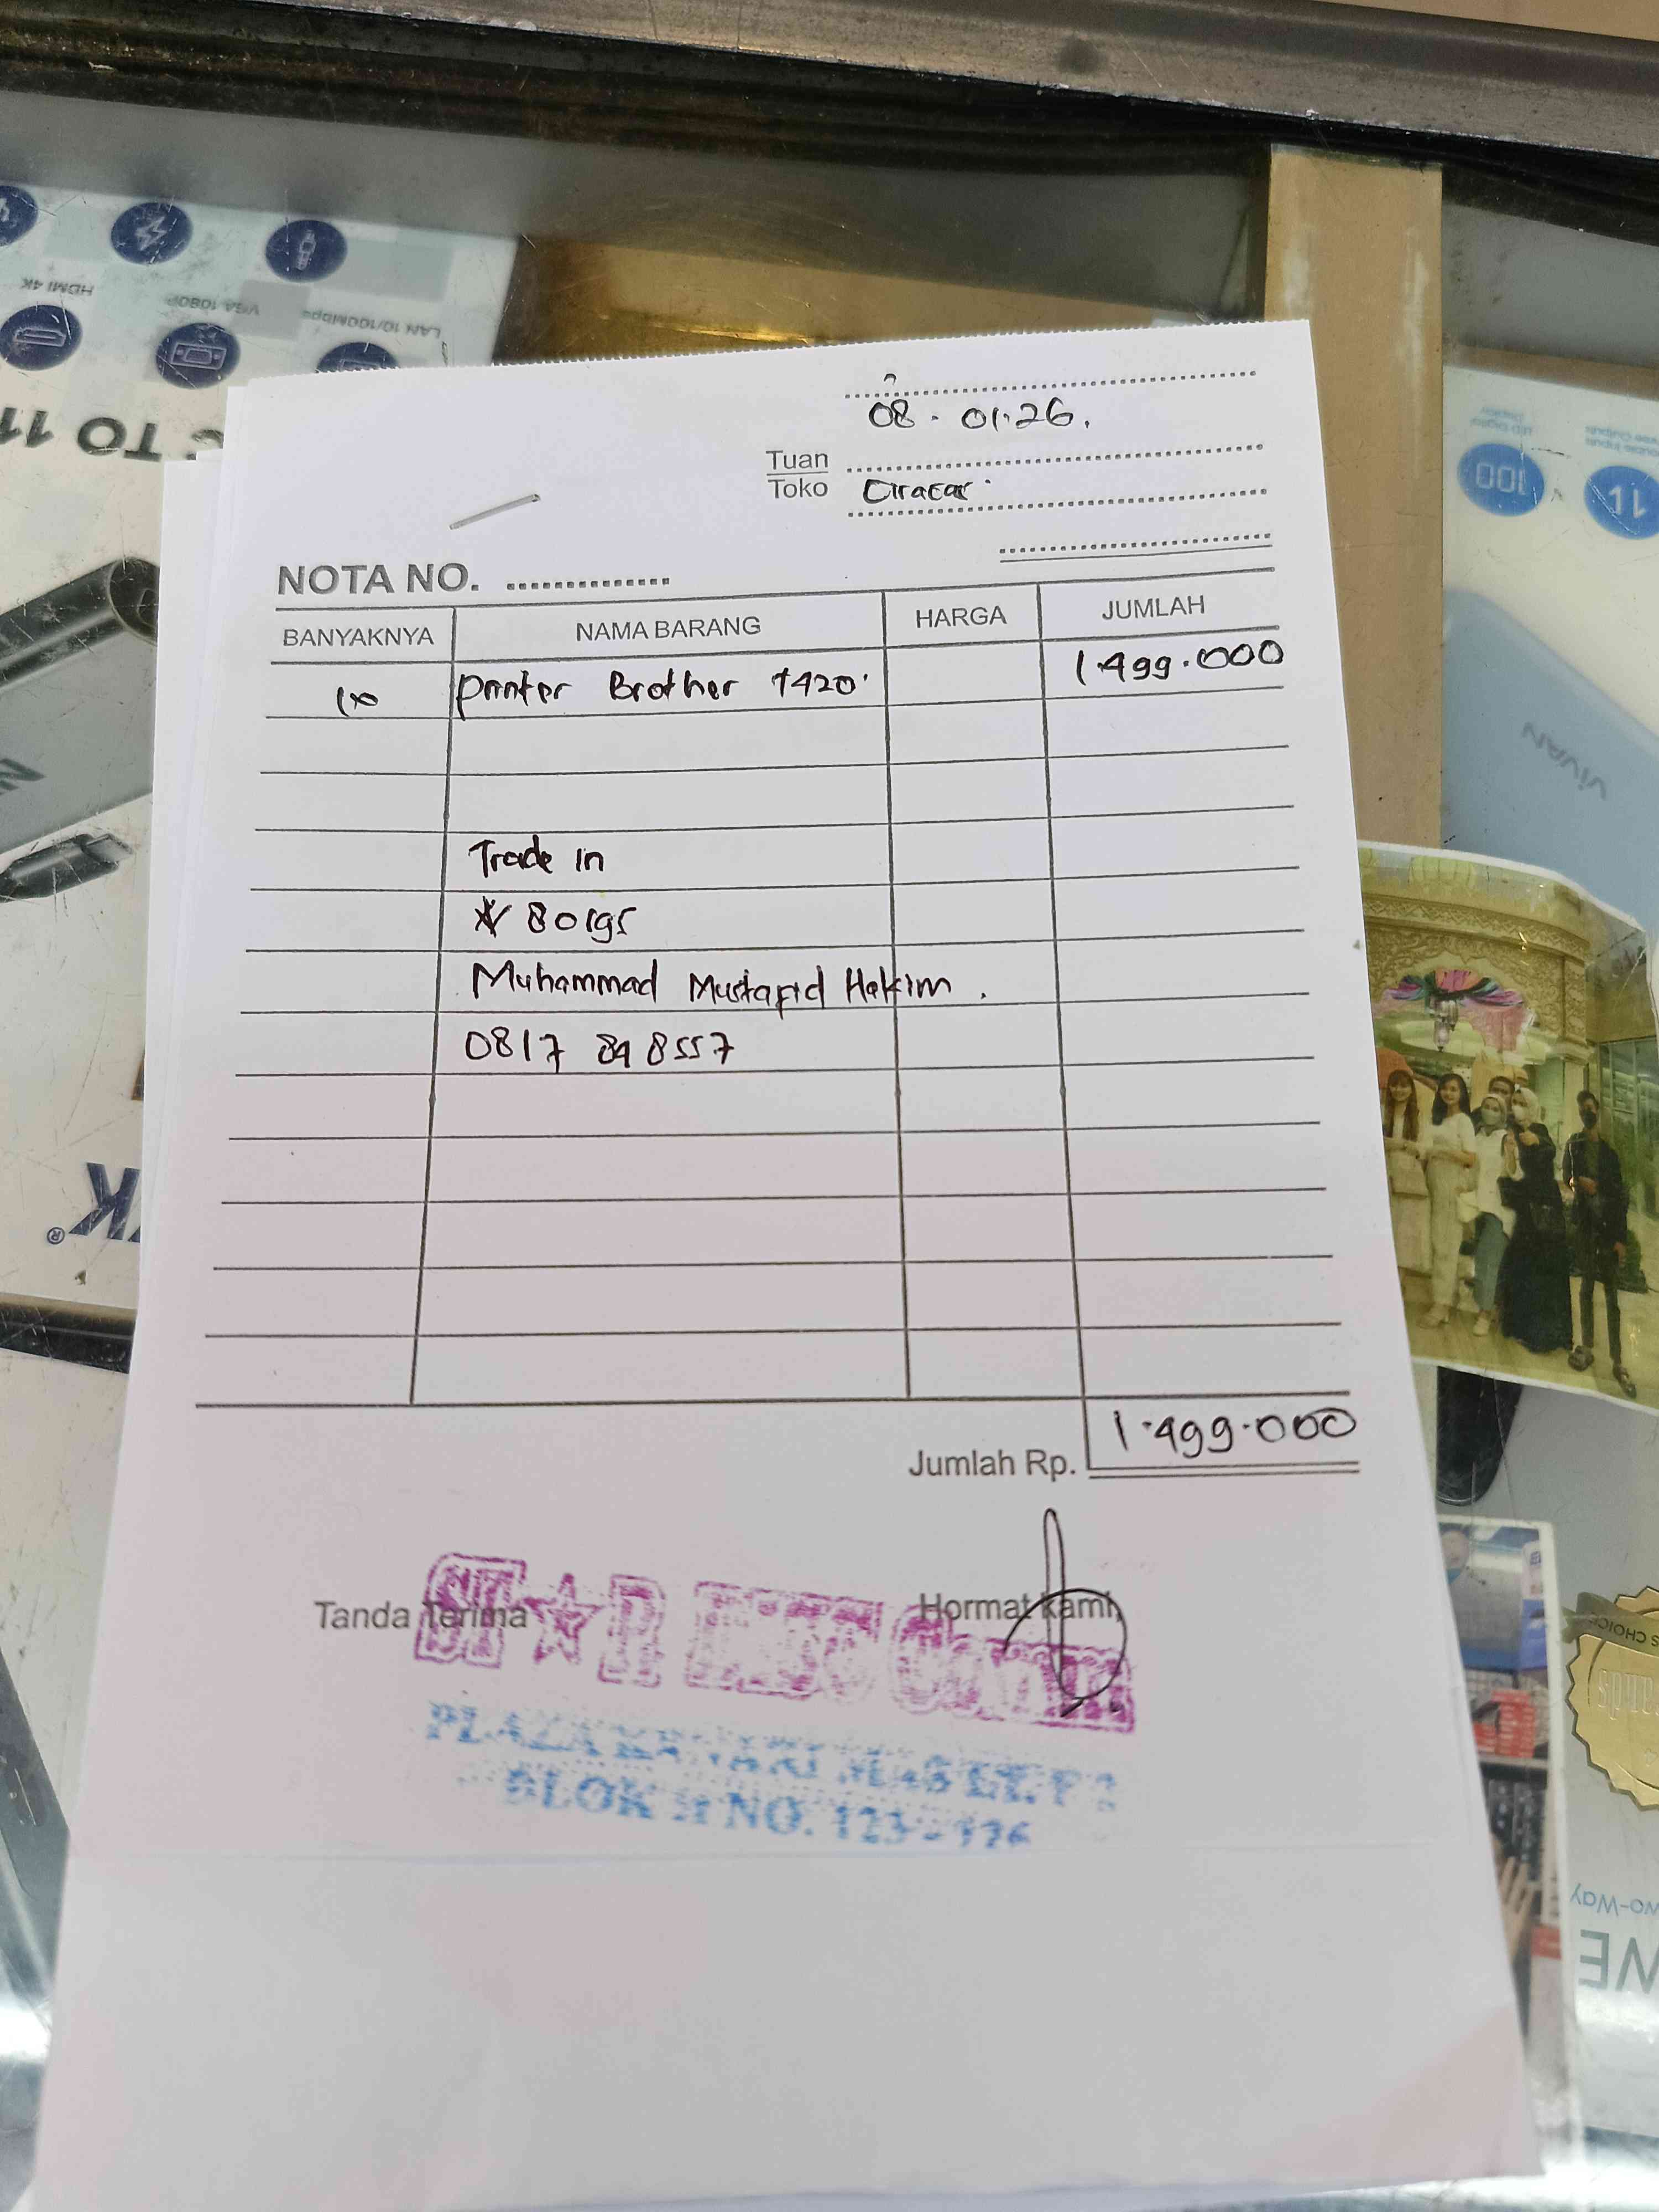 HDMI 4K
VGA 1080P
LAN 10/100Mbps
TO 11
08 . 01.26.
Tuan
Toko
NOTA NO. ...............
BANYAKNYA NAMA BARANG HARGA JUMLAH
1x Printer Brother T420 1.499.000
Trade in
Muhammad Mustafid Hakim .
0817 898557
Jumlah Rp. 1.499.000
Tanda Terima
Hormat Kami,
ST★R
PLAZA
BLOK NO. 123 -
100
11
ViVAN